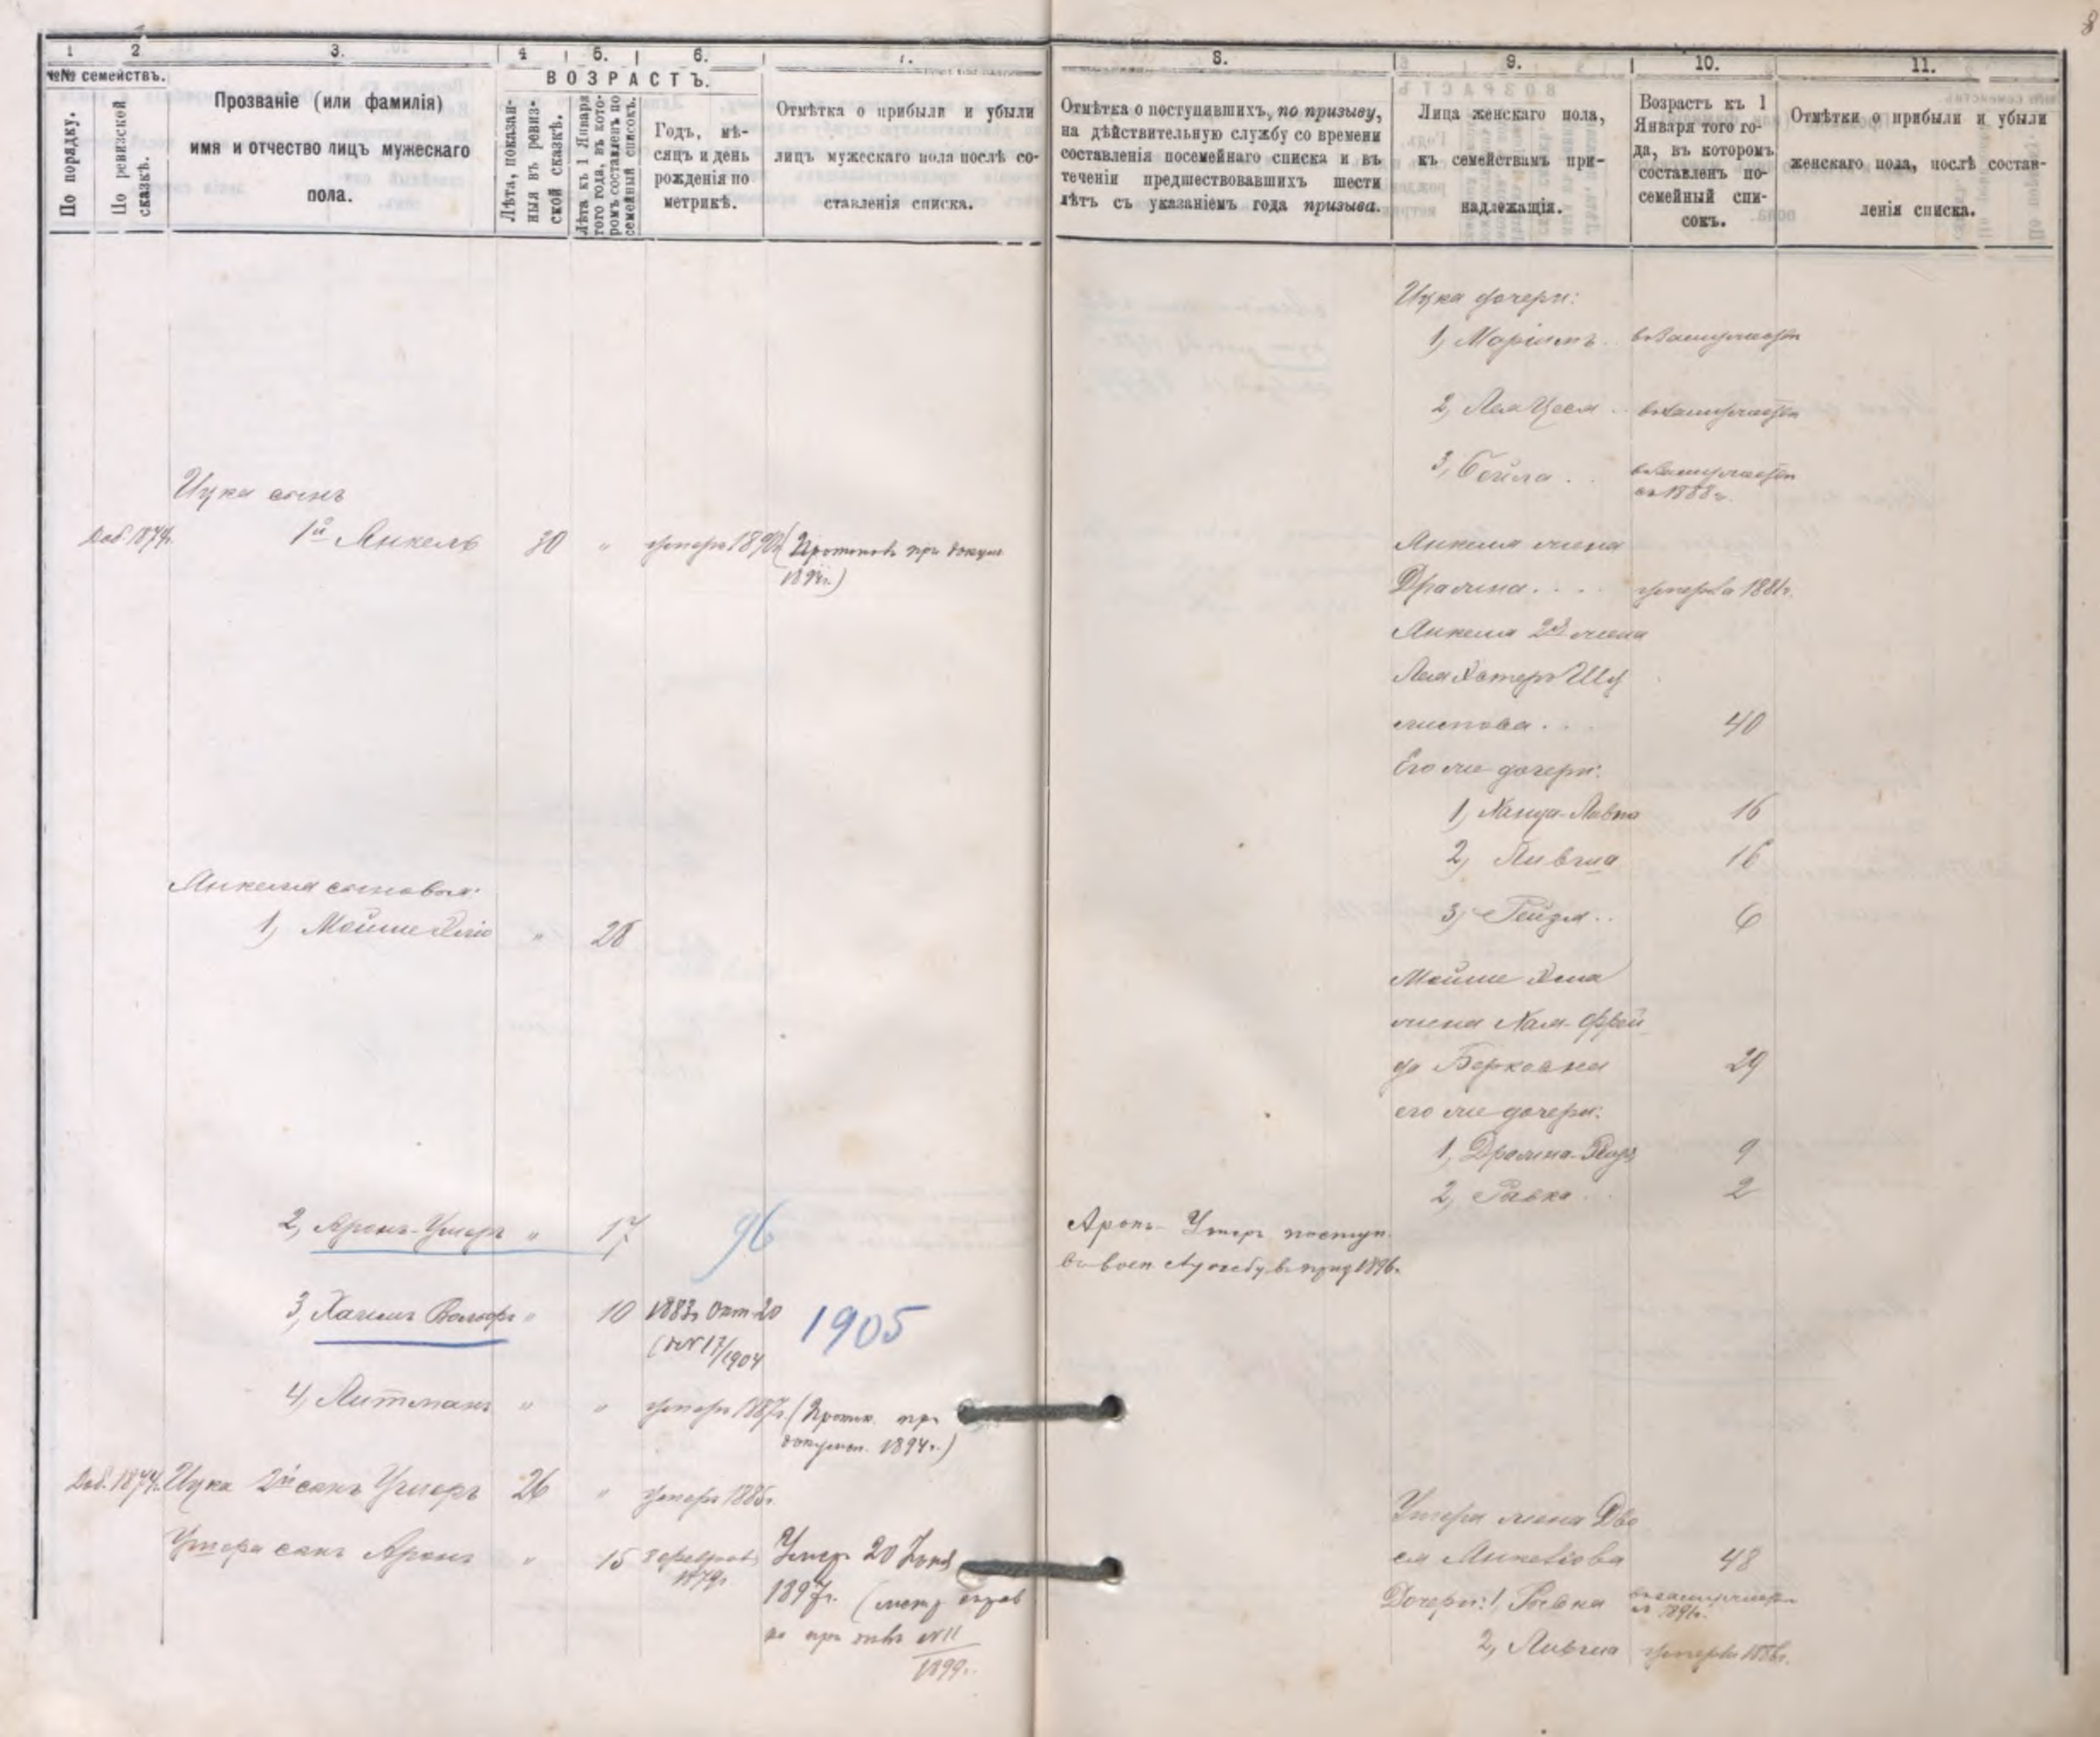 8
1
2
3.
4
5.
6.
7.
№№ семействъ.
ВОЗРАСТЪ.
По порядку.
По ревизской сказкѣ.
Прозваніе (или фамилія)
имя и отчество лицъ мужескаго
пола.
Лѣта, показан-
ныя въ ревиз-
ской сказкѣ.
Лѣта къ 1 Января
того года, въ кото-
ромъ составленъ по
семейный списокъ.
Годъ, мѣ-
сяцъ и день
рожденія по
метрикѣ.
Отмѣтка о прибыли и убыли
лицъ мужескаго пола послѣ со-
ставленія списка.
Ицка сынъ
Доб. 1874г. 1й Янкель 30 " умеръ 1890г. (Протоколъ при докум
189 г.)
Янкеля сыновья:
1, Мойше Хаимъ " 28
2, Аронъ-Умеръ " 17 96
3, Хаимъ Вольфъ " 10 1883г. Окт. 20 1905
(№ 17/1904
4, Литманъ " " умеръ 1887г. (Проток. при
докумен. 1894г.)
Доб. 1874г. Ицка 2й сынъ Умеръ 26 " умеръ 1885г.
Умера сынъ Аронъ " 15 8 февраля Умеръ 20
1879г. 1897г. (метр справ
ка при № 11
1899г.
8.
9.
10.
11.
Отмѣтка о поступившихъ, по призыву,
на дѣйствительную службу со времени
составленія посемейнаго списка и въ
теченіи предшествовавшихъ шести
лѣтъ съ указаніемъ года призыва.
Лица женскаго пола,
къ семействамъ при-
надлежащія.
Возрастъ къ 1
Января того го-
да, въ которомъ
составленъ по-
семейный спи-
сокъ.
Отмѣтки о прибыли и убыли
женскаго пола, послѣ состав-
ленія списка.
Ицка дочери:
1, Маріямъ . въ замужествѣ
2, Лея Цеся .. въ замужествѣ
3, Бейла . . въ замужествѣ
съ 1888г.
Янкеля жена
Дражна . . . . умерла 1881г.
Янкеля 2я жена
Лея Эстеръ
40
Его же дочери:
1, 16
2, Ливша 16
3, Рейзя .. 6
Мойше
жена Хая-Фрей
да Берковна 29
его же дочери:
1, Дражна 9
2, Рывка . . 2
Аронъ-Умеръ поступ.
въ воен службу въ приз 1896г.
Умера жена Дво
ся 48
Дочери: 1, Рывка въ замужествѣ
съ 1891г.
2, Ливша умерла 1886г.